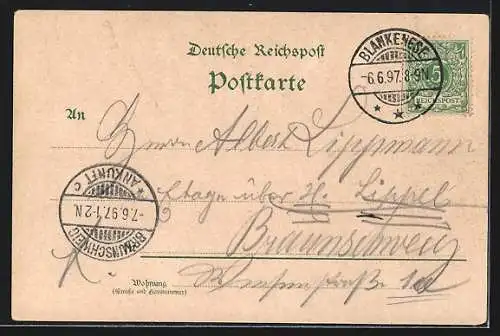 Deutsche Reichspost
Postkarte
BLANKENESE
-6.6.97.8-9N
5
REICHSPOST
An
Herrn Albert Lippmann
Etage über H. Lippel
Braunschweig
straße
BRAUNSCHWEIG
-7.6.97.1-2N.
* ANKUNFT c
Wohnung
(Straße und Hausnummer)